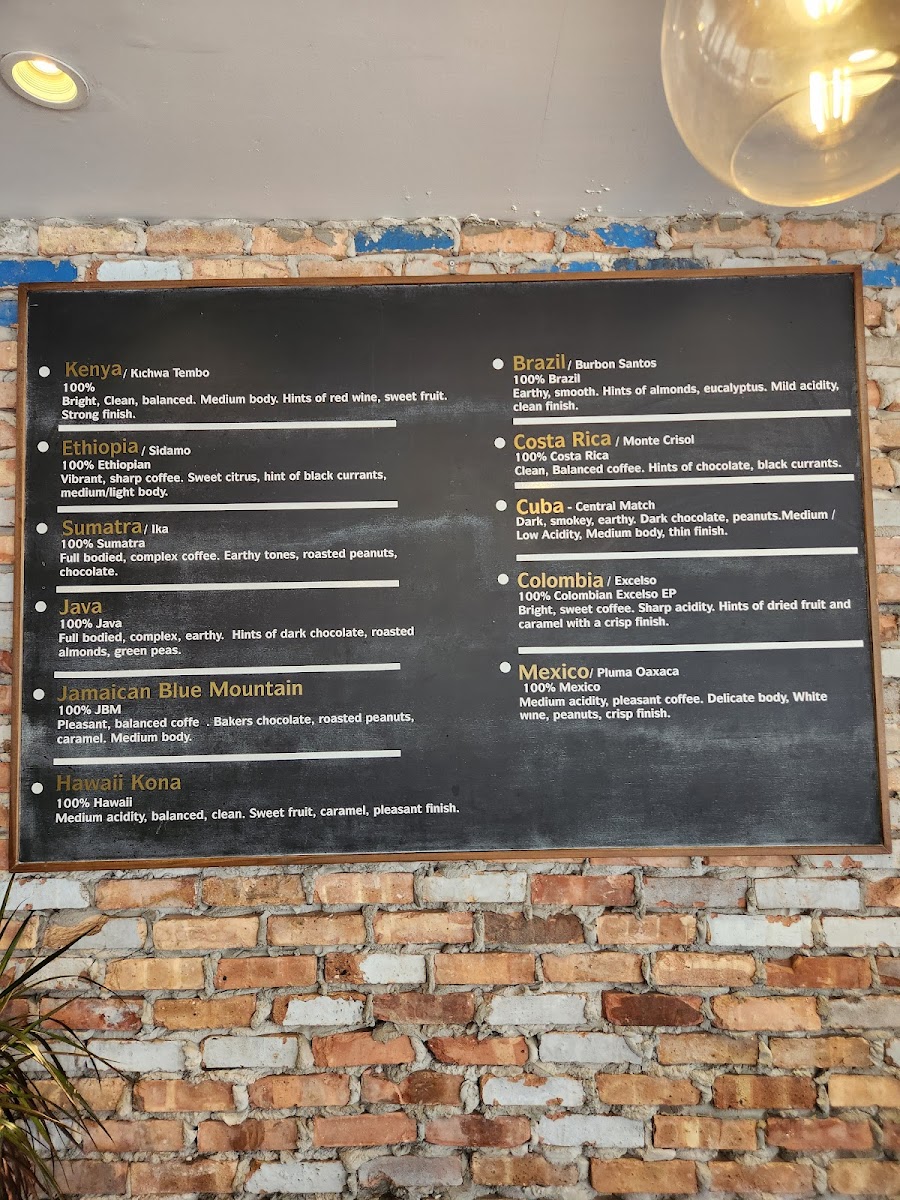 Kenya / Kichwa Tembo
100%
Bright, Clean, balanced. Medium body. Hints of red wine, sweet fruit.
Strong finish.
Ethiopia / Sidamo
100% Ethiopian
Vibrant, sharp coffee. Sweet citrus, hint of black currants,
medium/light body.
Sumatra / Ika
100% Sumatra
Full bodied, complex coffee. Earthy tones, roasted peanuts,
chocolate.
Java
100% Java
Full bodied, complex, earthy. Hints of dark chocolate, roasted
almonds, green peas.
Jamaican Blue Mountain
100% JBM
Pleasant, balanced coffe . Bakers chocolate, roasted peanuts,
caramel. Medium body.
Hawaii Kona
100% Hawaii
Medium acidity, balanced, clean. Sweet fruit, caramel, pleasant finish.
Brazil / Burbon Santos
100% Brazil
Earthy, smooth. Hints of almonds, eucalyptus. Mild acidity,
clean finish.
Costa Rica / Monte Crisol
100% Costa Rica
Clean, Balanced coffee. Hints of chocolate, black currants.
Cuba - Central Match
Dark, smokey, earthy. Dark chocolate, peanuts.Medium /
Low Acidity, Medium body, thin finish.
Colombia / Excelso
100% Colombian Excelso EP
Bright, sweet coffee. Sharp acidity. Hints of dried fruit and
caramel with a crisp finish.
Mexico / Pluma Oaxaca
100% Mexico
Medium acidity, pleasant coffee. Delicate body, White
wine, peanuts, crisp finish.